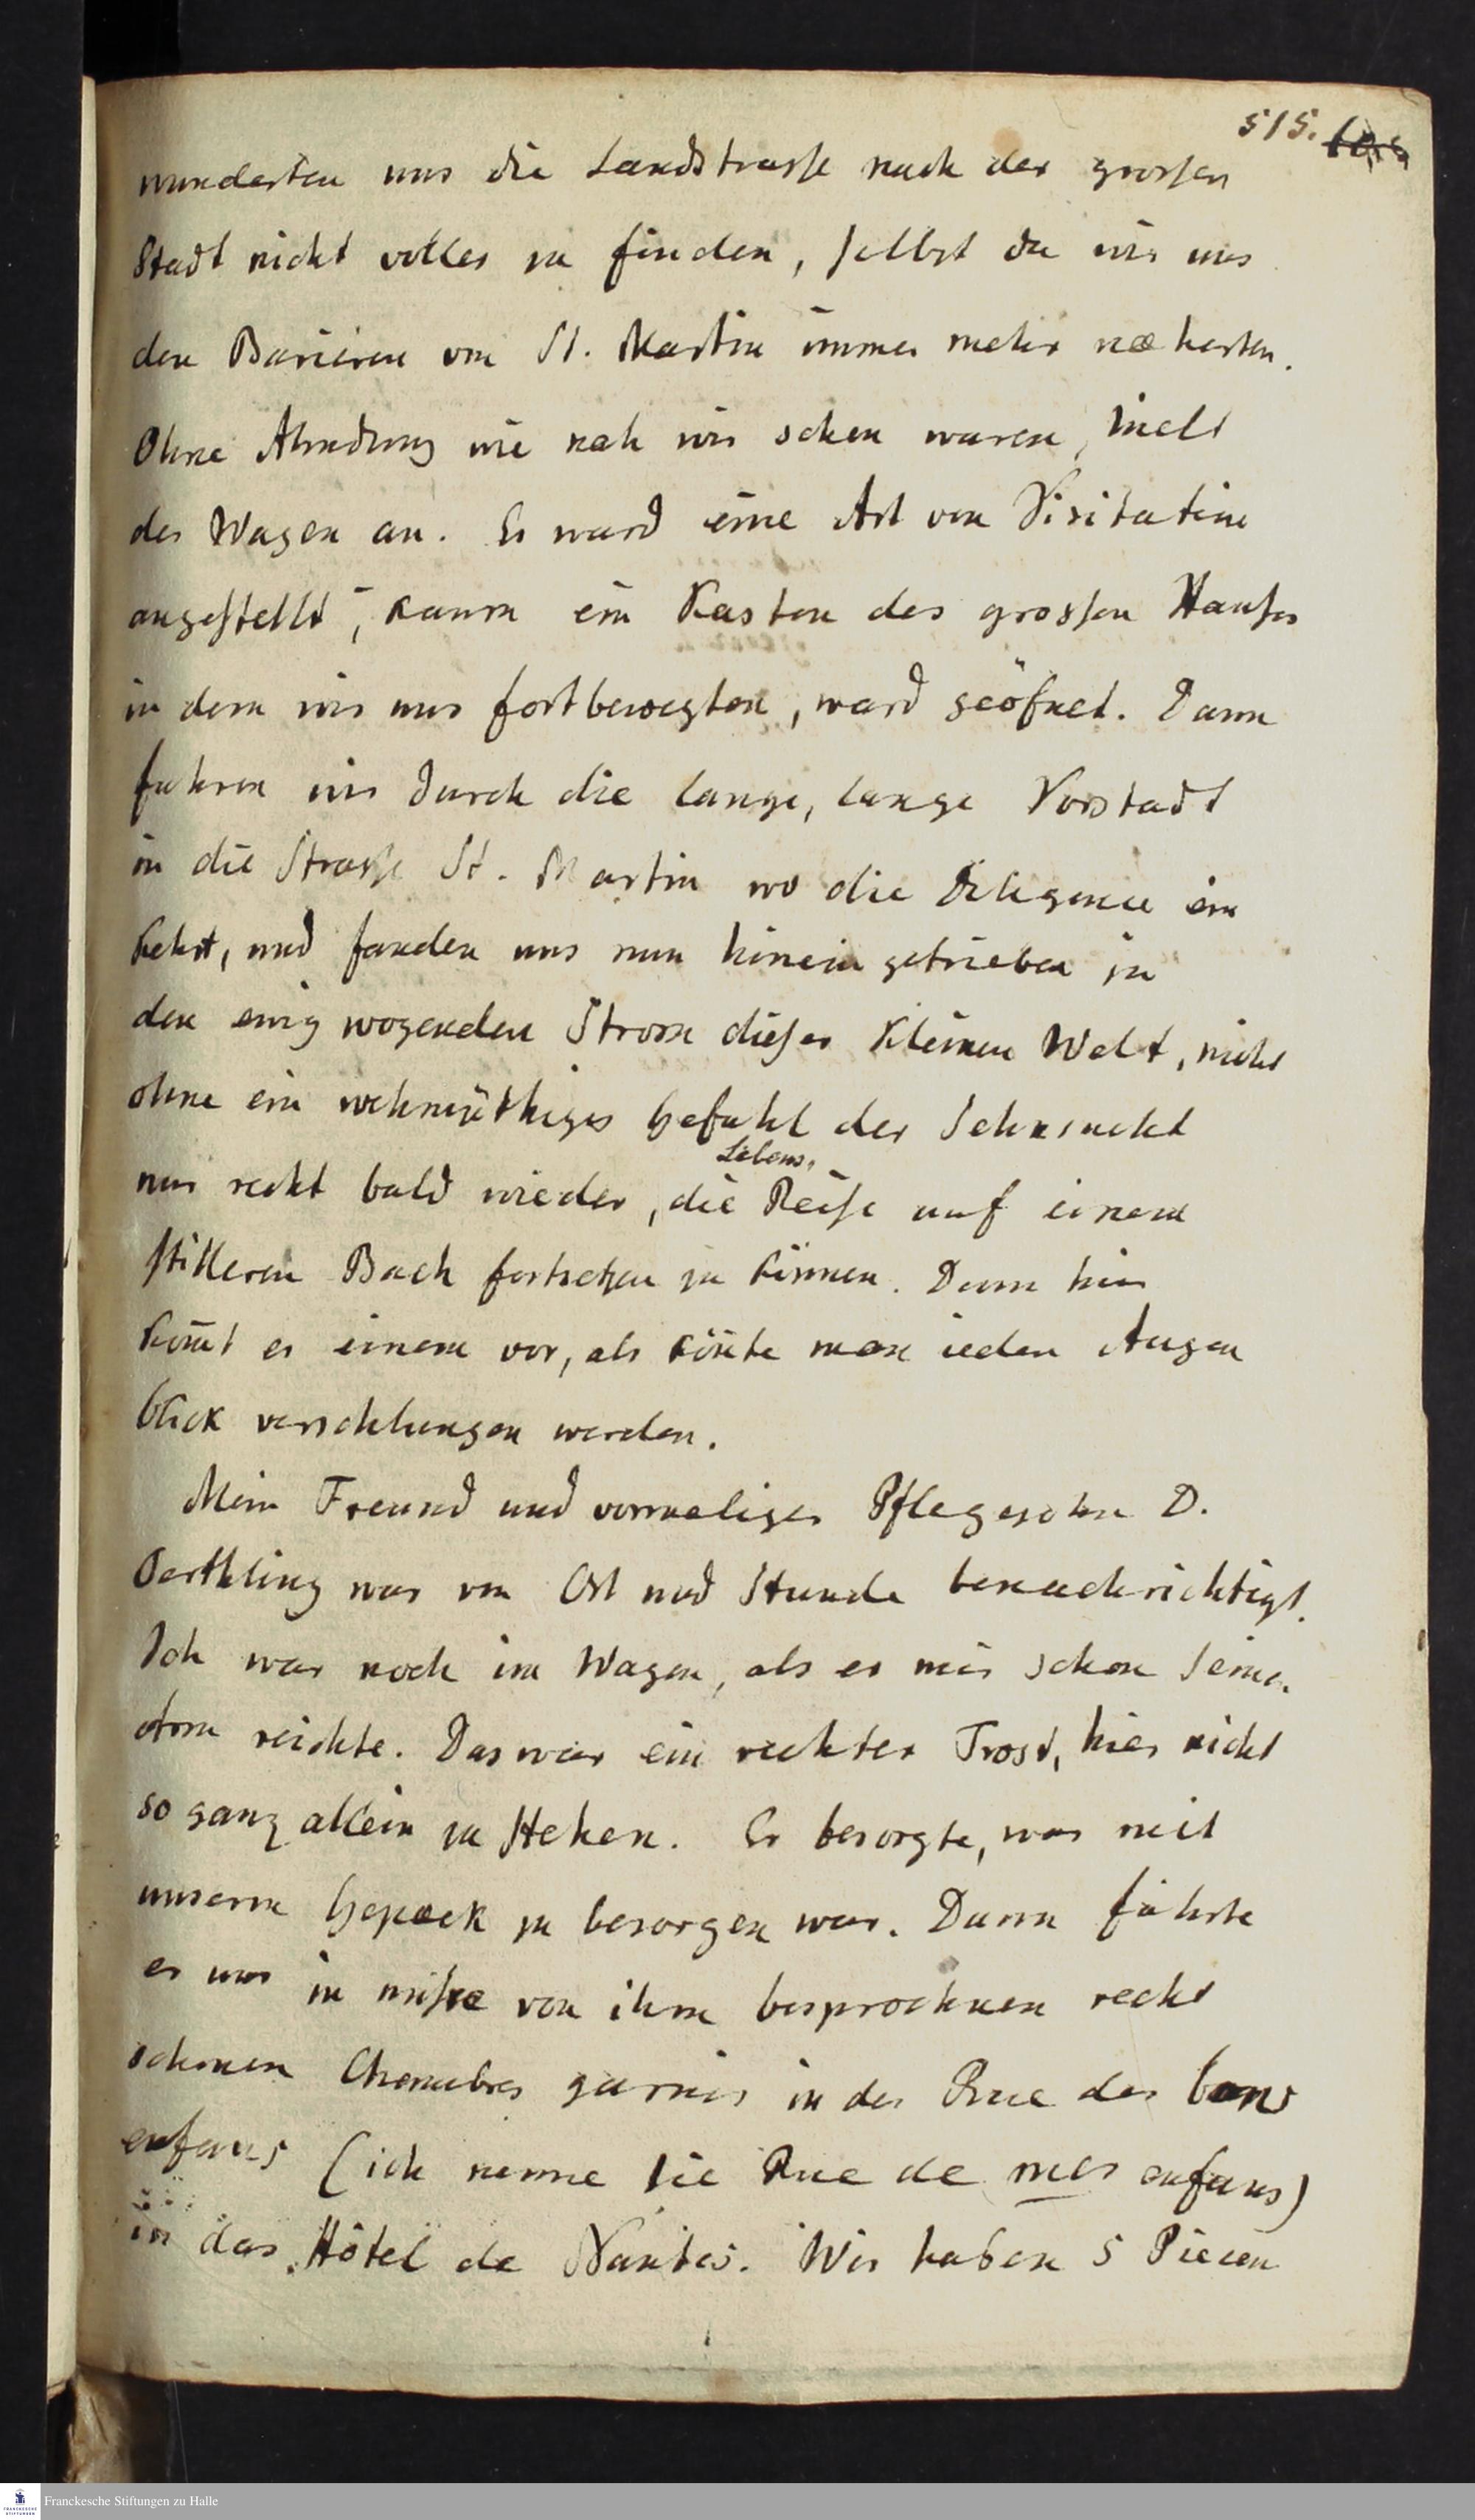 515.
wunderten uns die Landstrasse nach der grossen
Stadt nicht voller zu finden, selbst da wir uns
den Barieren von St. Martin immer mehr næherten.
Ohne Ahndung wie nah wir schon waren, hielt
der Wagen an. Es ward eine Art von Visitation
angestellt, kaum ein Kasten des grossen Hauses
in dem wir uns fortbewegten, ward geöfnet. Dann
fuhren wir durch die lange, lange Vorstadt
in die Strasse St. Martin wo die Diligence ein
kehrt, und fanden uns nun hinein getrieben in
den ewig wogenden Strom dieser kleinen Welt, nicht
ohne ein wehmüthiges Gefühl der Sehnsucht
Lebens,
nur recht bald wieder, die Reise auf einem
stilleren Bach fortsetzen zu können. Denn hier
kom̄t es einem vor, als kön̄te man ieden Augen
blick verschlungen werden.
Mein Freund und vormaliger Pflegesohn D.
Oerthling war von Ort und Stunde benachrichtigt.
Ich war noch im Wagen, als er mir schon seinen
Arm reichte. Das war ein rechter Trost, hier nicht
so ganz allein zu stehen. Er besorgte, was mit
unserm Gepæck zu besorgen war. Dann führte
er uns in unsre von ihm besprochnen recht
schönen Chambres garnies in der Rue des bons
enfans (ich nenne sie Rue de mes enfans)
in das Hôtel de Nantes. Wir haben 5 Piecen
Franckesche Stiftungen zu Halle